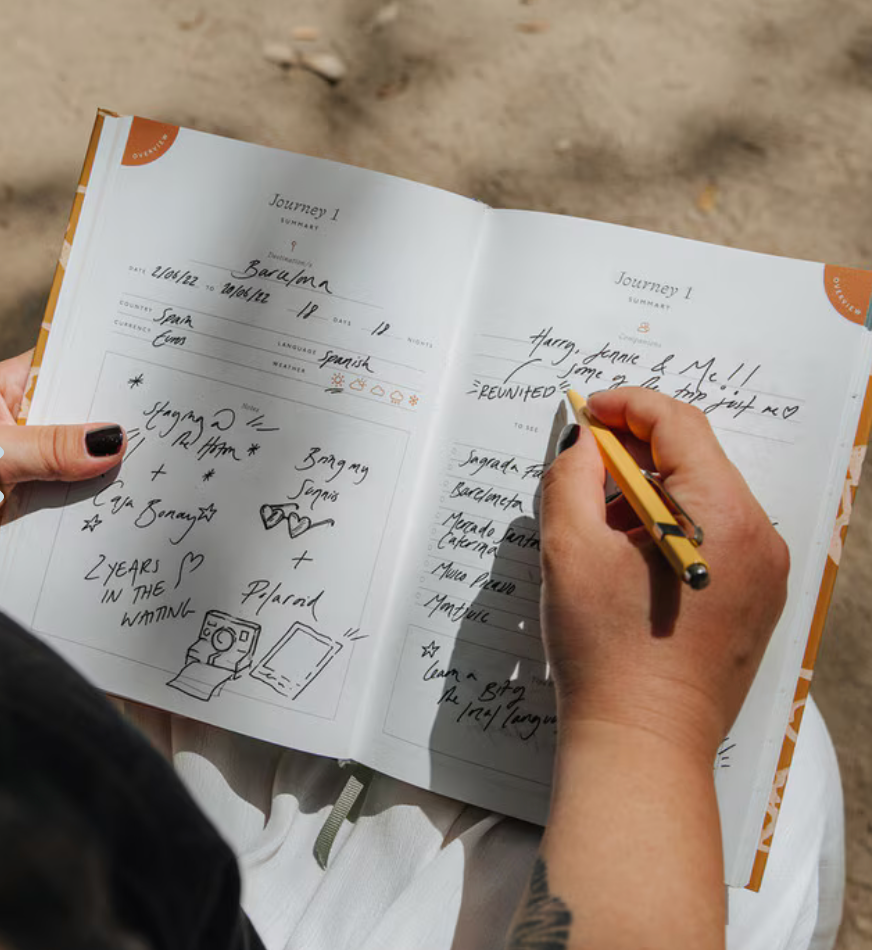 OVERVIEW
Journey 1
SUMMARY
Destination/s
Barcelona
DATE 2/06/22 TO 20/06/22 18 DAYS 18 NIGHTS
COUNTRY Spain
LANGUAGE Spanish
CURRENCY Euros
WEATHER
Notes
Staying @
the Hoxton
+
Casa Bonay
2 YEARS
IN THE
WAITING
Bring my
Sunnis
+
Polaroid
OVERVIEW
Journey 1
SUMMARY
Companions
Harry, Jennie & Me!!
some of the trip just me
REUNITED
TO SEE
Sagrada
Barceloneta
Mercado Santa
Caterina
Montjuic
Learn a
Bit of
the local